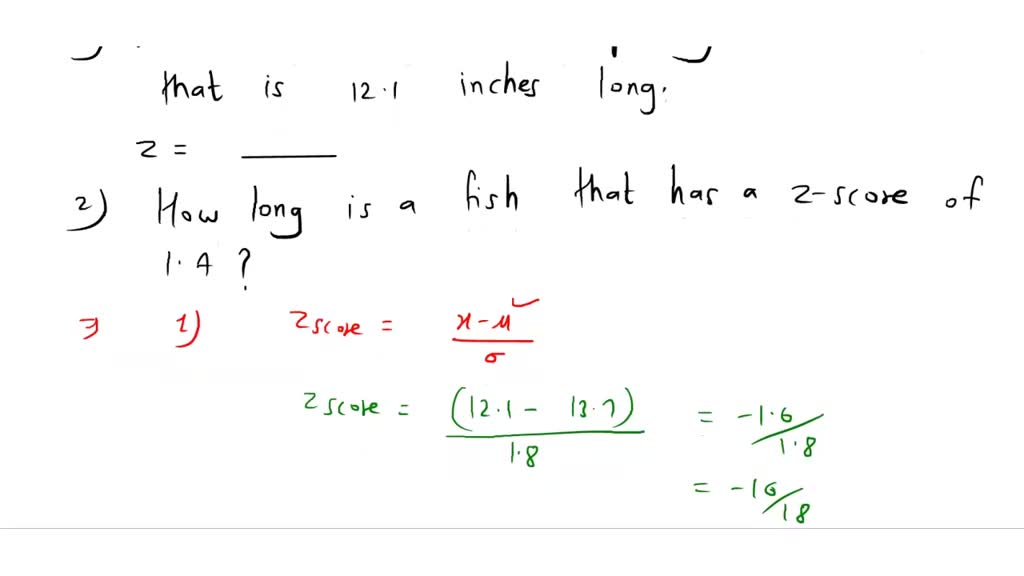 that is 12.1 inches long.
z = ____
2) How long is a fish that has a z-score of
1.4 ?
⇒ 1) z score = x-μ / σ
z score = (12.1 - 13.7) / 1.8 = -1.6/1.8
= -16/18